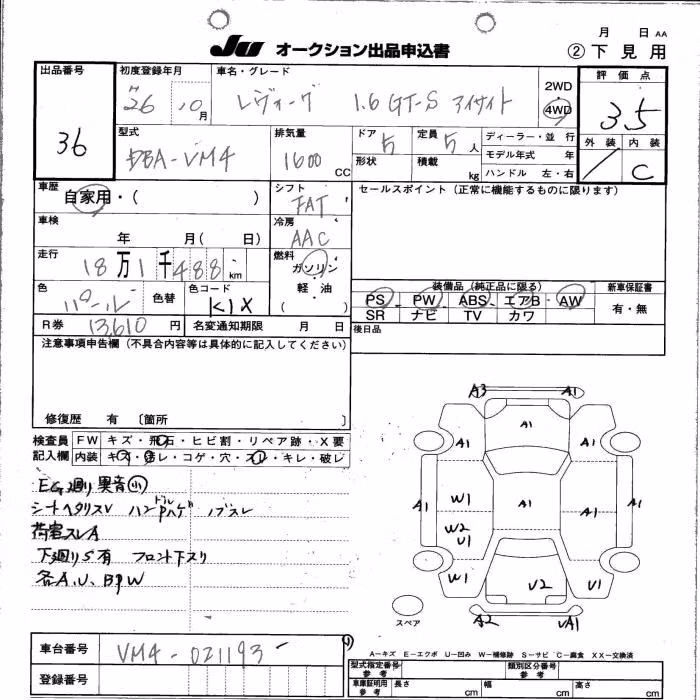 月 日 AA
JU オークション出品申込書 ② 下見用
出品番号 36
初度登録年月 H26 10月
車名・グレード レヴォーグ 1.6 GT-S アイサイト
2WD
4WD
評価点 3.5
外装 内装 C
型式 DBA-VM4
排気量 1600 CC
ドア 5 定員 5 人
形状 積載 kg
ディーラー・並行
モデル年式 年
ハンドル 左・右
車歴 自家用・( )
シフト FAT
セールスポイント(正常に機能するものに限ります)
車検 年 月( 日)
冷房 AAC
走行 18万1千488 km
燃料 ガソリン 軽油 ( )
色 パール 色替 色コード K1X
装備品(純正品に限る) 新車保証書
PS PW ABS エアB AW 有・無
SR ナビ TV カワ
R券 13,610 円 名変通知期限 月 日
後日品
注意事項申告欄(不具合内容等は具体的に記入してください)
修復歴 有 〔箇所 〕
検査員 FW キズ・飛石・ヒビ割・リペア跡・X要
記入欄 内装 キズ・汚レ・コゲ・穴・スレ・キレ・破レ
EG廻り異音小
シートヘタリスレ ハンドルハゲ ノブスレ
荷室スレA
下廻りS有 フロント下スリ
各A.U、BPW
A3 A1
A1 A1 A1
A1 W1 A1 A1 A1
W2
U1
W1 U2 U1
A2 UA1
スペア
車台番号 VM4-021193
登録番号
A-キズ E-エクボ U-凹み W-補修跡 S-サビ C-腐食 XX-交換済
型式指定番号 参考 類別区分番号
車庫証明用 参考 長さ cm 幅 cm 高さ cm